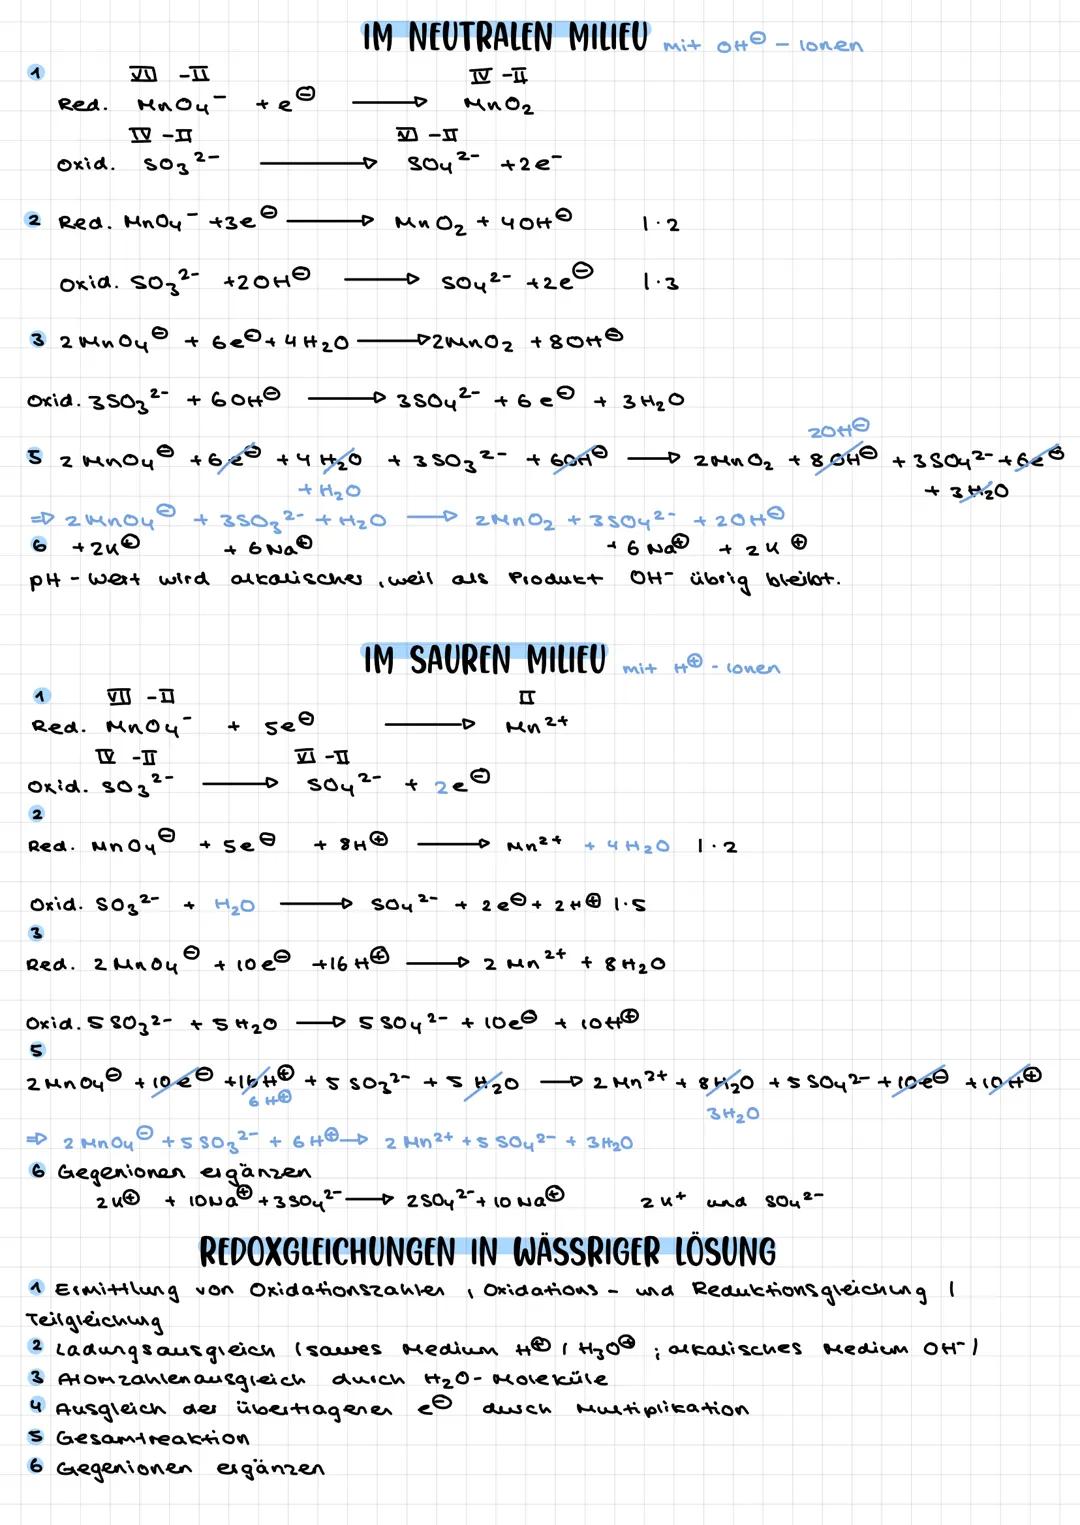 IM NEUTRALEN MILIEU mit OH⊖ - Ionen
1 VII -II IV -II
Red. MnO₄⁻ + e⊖ → MnO₂
IV -II VI -II
Oxid. SO₃²⁻ → SO₄²⁻ +2e⁻
2 Red. MnO₄⁻ +3e⊖ → MnO₂ + 4OH⊖ |·2
Oxid. SO₃²⁻ +2OH⊖ → SO₄²⁻ +2e⊖ |·3
3 2MnO₄⊖ + 6e⊖ + 4H₂O → 2MnO₂ + 8OH⊖
Oxid. 3SO₃²⁻ + 6OH⊖ → 3SO₄²⁻ + 6e⊖ + 3H₂O
2OH⊖
5 2MnO₄⊖ +6e⊖ +4H₂O + 3SO₃²⁻ + 6OH⊖ → 2MnO₂ +8OH⊖ +3SO₄²⁻ +6e⊖
+ H₂O + 3H₂O
⇒ 2MnO₄⊖ + 3SO₃²⁻ + H₂O → 2MnO₂ + 3SO₄²⁻ + 2OH⊖
6 +2K⊕ + 6Na⊕ + 6Na⊕ + 2K⊕
pH - Wert wird alkalischer, weil als Produkt OH⁻ übrig bleibt.
IM SAUREN MILIEU mit H⊕ - Ionen
1 VII -II II
Red. MnO₄⁻ + 5e⊖ → Mn²⁺
IV -II VI -II
Oxid. SO₃²⁻ → SO₄²⁻ + 2e⊖
2
Red. MnO₄⊖ + 5e⊖ + 8H⊕ → Mn²⁺ + 4H₂O |·2
Oxid. SO₃²⁻ + H₂O → SO₄²⁻ + 2e⊖ + 2H⊕ |·5
3
Red. 2MnO₄⊖ + 10e⊖ +16H⊕ → 2Mn²⁺ + 8H₂O
Oxid. 5SO₃²⁻ + 5H₂O → 5SO₄²⁻ + 10e⊖ + 10H⊕
5
2MnO₄⊖ +10e⊖ +16H⊕ + 5SO₃²⁻ + 5H₂O → 2Mn²⁺ + 8H₂O +5SO₄²⁻ +10e⊖ +10H⊕
6H⊕ 3H₂O
⇒ 2MnO₄⊖ + 5SO₃²⁻ + 6H⊕ → 2Mn²⁺ + 5SO₄²⁻ + 3H₂O
6 Gegenionen ergänzen
2K⊕ + 10Na⊕ + 3SO₄²⁻ → 2SO₄²⁻ + 10Na⊕ 2K⁺ und SO₄²⁻
REDOXGLEICHUNGEN IN WÄSSRIGER LÖSUNG
1 Ermittlung von Oxidationszahlen, Oxidations - und Reduktionsgleichung /
Teilgleichung
2 Ladungsausgleich (saures Medium H⊕ / H₃O⊕ ; alkalisches Medium OH⁻)
3 Atomzahlenausgleich durch H₂O - Moleküle
4 Ausgleich der übertragenen e⊖ durch Multiplikation
5 Gesamtreaktion
6 Gegenionen ergänzen